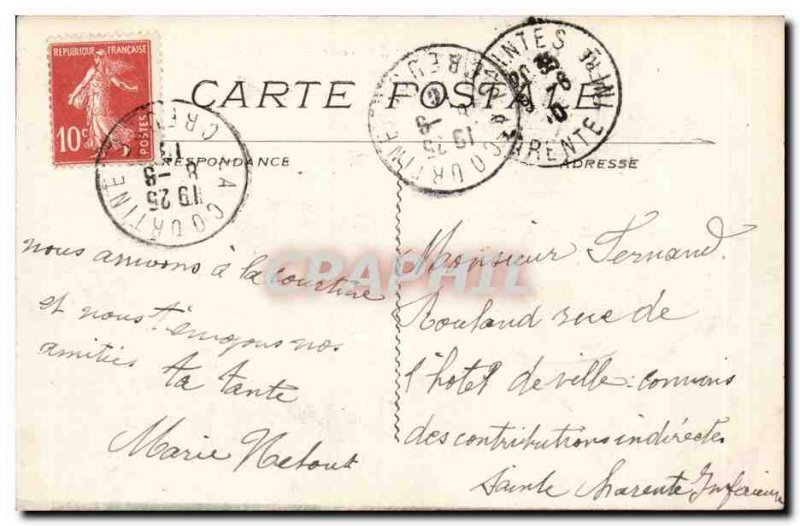 REPUBLIQUE FRANÇAISE
10c
POSTES
CARTE POSTALE
CORRESPONDANCE
ADRESSE
LA COURTINE
CREUSE
8-9
1925
LA COURTINE
CREUSE
8-9
1925
SAINTES
CHARENTE INFRE
nous arrivons à la courtine
et nous t'envoyons nos
amitiés ta tante
Marie
Monsieur Fernand
Rouland rue de
l'hotel de ville: commis
des contributions indirectes
Sainte Charente Inférieure
CPRAPHIL